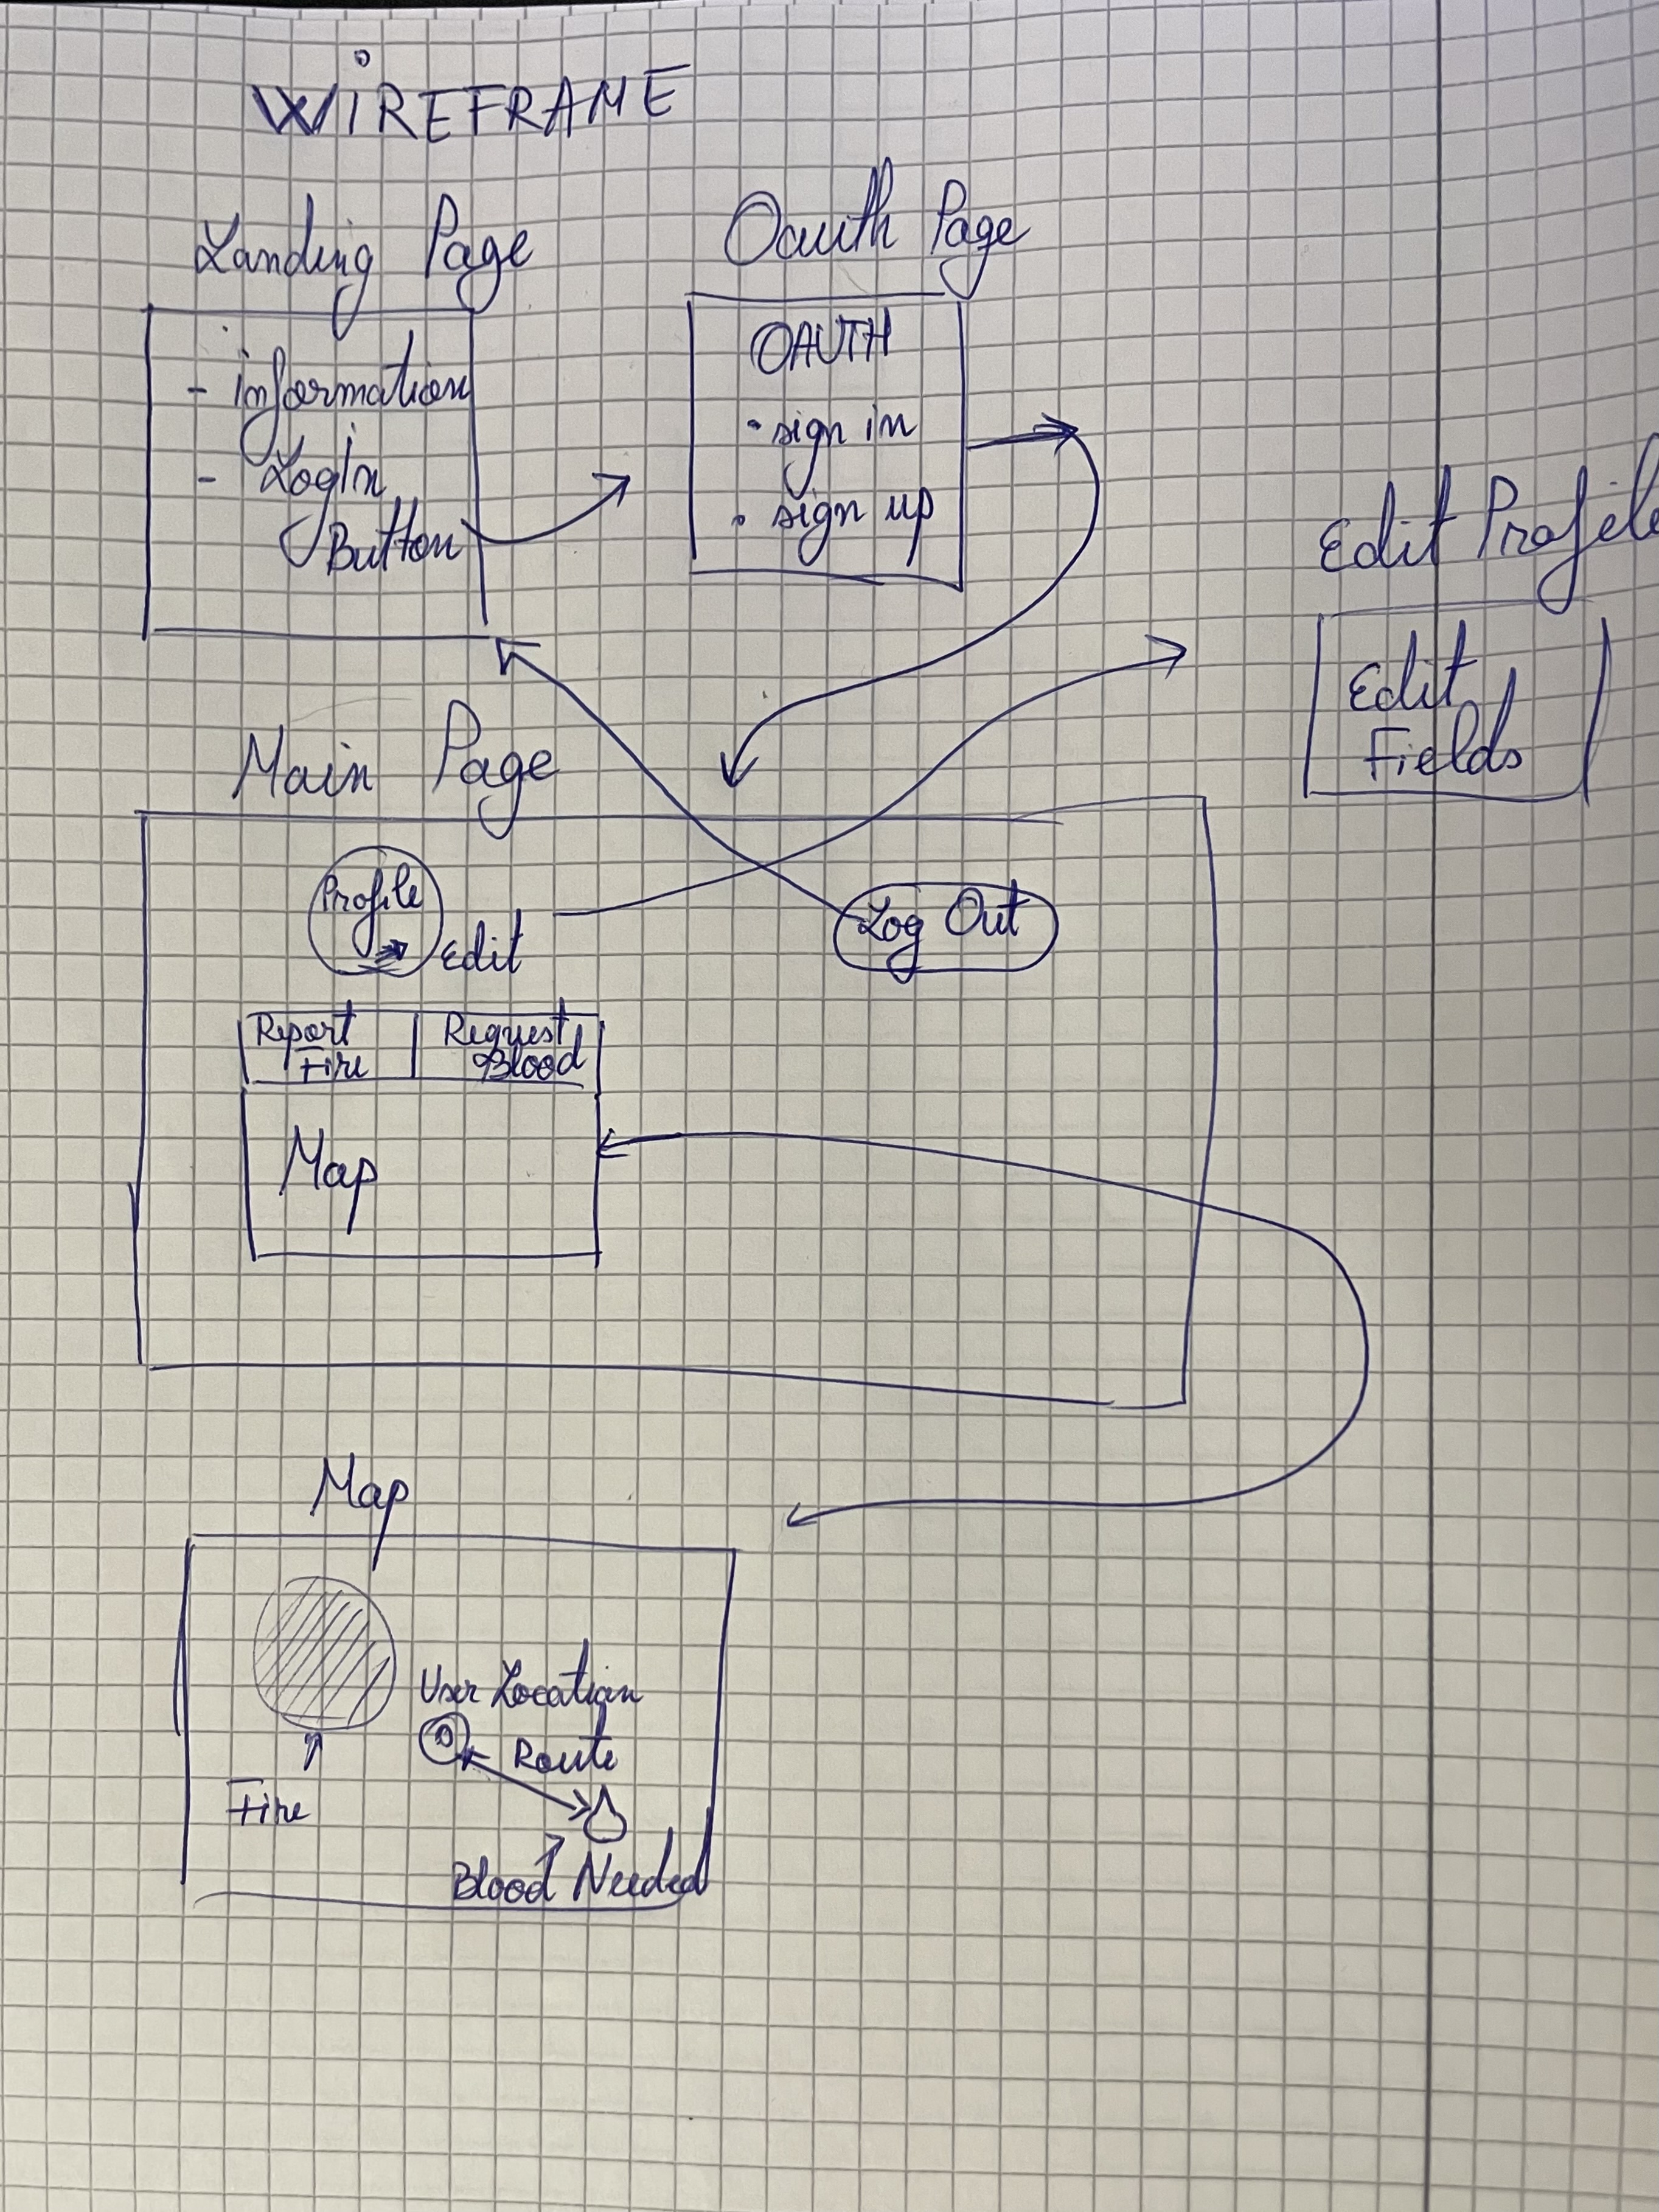 WiREFRAME
Landing Page
- information
- Login
Button
Oauth Page
OAUTH
• sign in
• sign up
Edit Profile
Edit
Fields
Main Page
Profile
Edit
Log Out
Report
Fire
Request
Blood
Map
Map
User Location
Route
Fire
Blood Needed